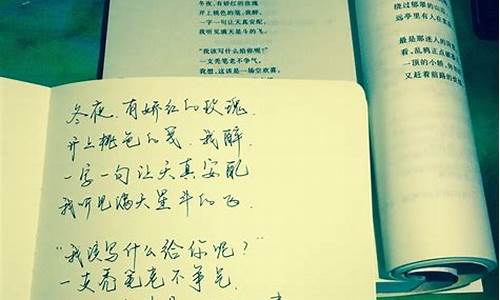 冬夜，有娇红的玫瑰
开上桃色的笺，我醉，
一字一句让天真安配
我听见满天星斗的飞，
“我该写什么给你呢？”
一支秃笔老不争气，
我想，这该是一场空欢喜。
绕过郁翠的山
远亭里有人在
最是那迷人的
看，乱鸦正点
一顶的小轿，
又赶着前路的
冬夜、有娇红的玫瑰、
开上桃色的笺、我醉、
一字一句让天真安配
我听见满天星斗的飞、
“我该写什么给你呢？”
一支秃笔老不争气、